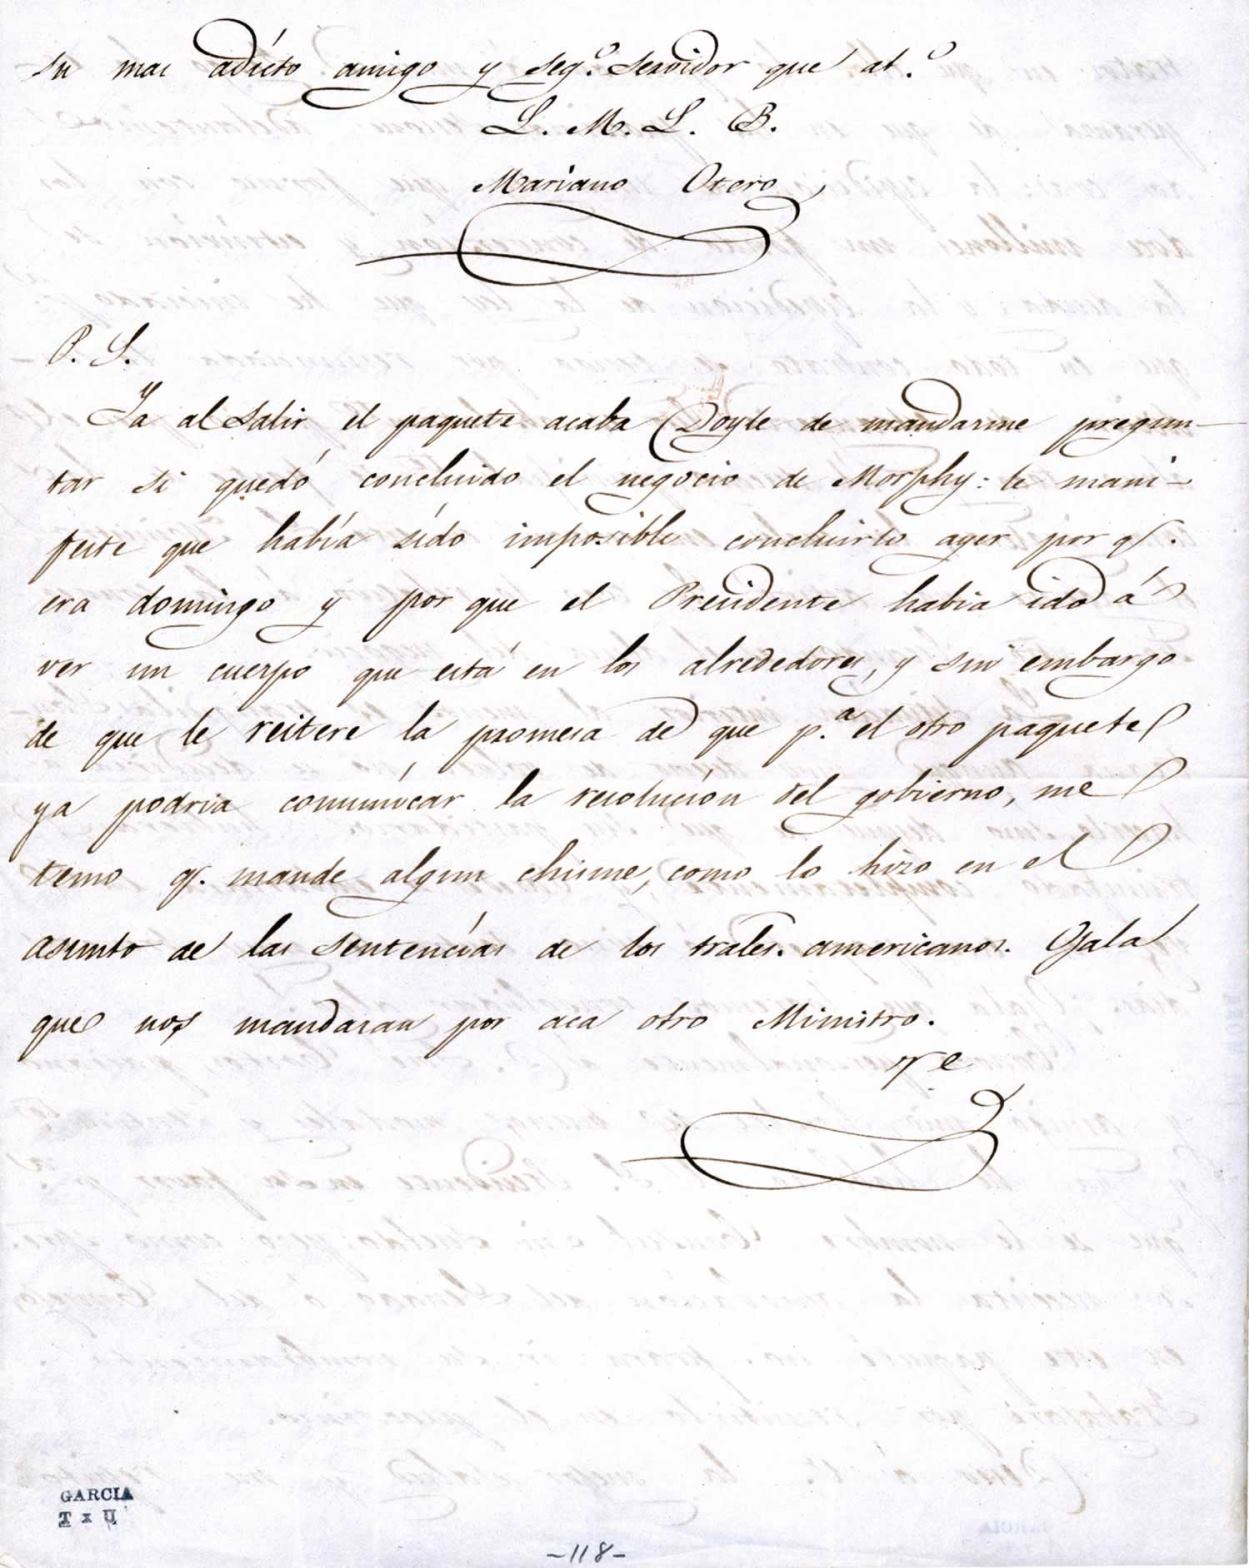 su mas adicto amigo y seg.º servidor que at.º
L. M. L. B.
Mariano Otero
P. S.
Ya al salir el paquete acaba Doyle de mandarme pregun-
tar si quedó concluido el negocio de Morphy: le mani-
feste que habia sido imposible concluirlo ayer por q.
era domingo y por que el Presidente habia ido á
ver un cuerpo que está en los alrededores, y sin embargo
de que le reitere la promesa de que p.ª el otro paquete
ya podria comunicar la resolucion del gobierno, me
temo q. mande algun chisme, como lo hizo en el
asunto de las sentencias de los trales. americanos. Ojala
que nos mandaran por aca otro Ministro.
GARCIA
-118-